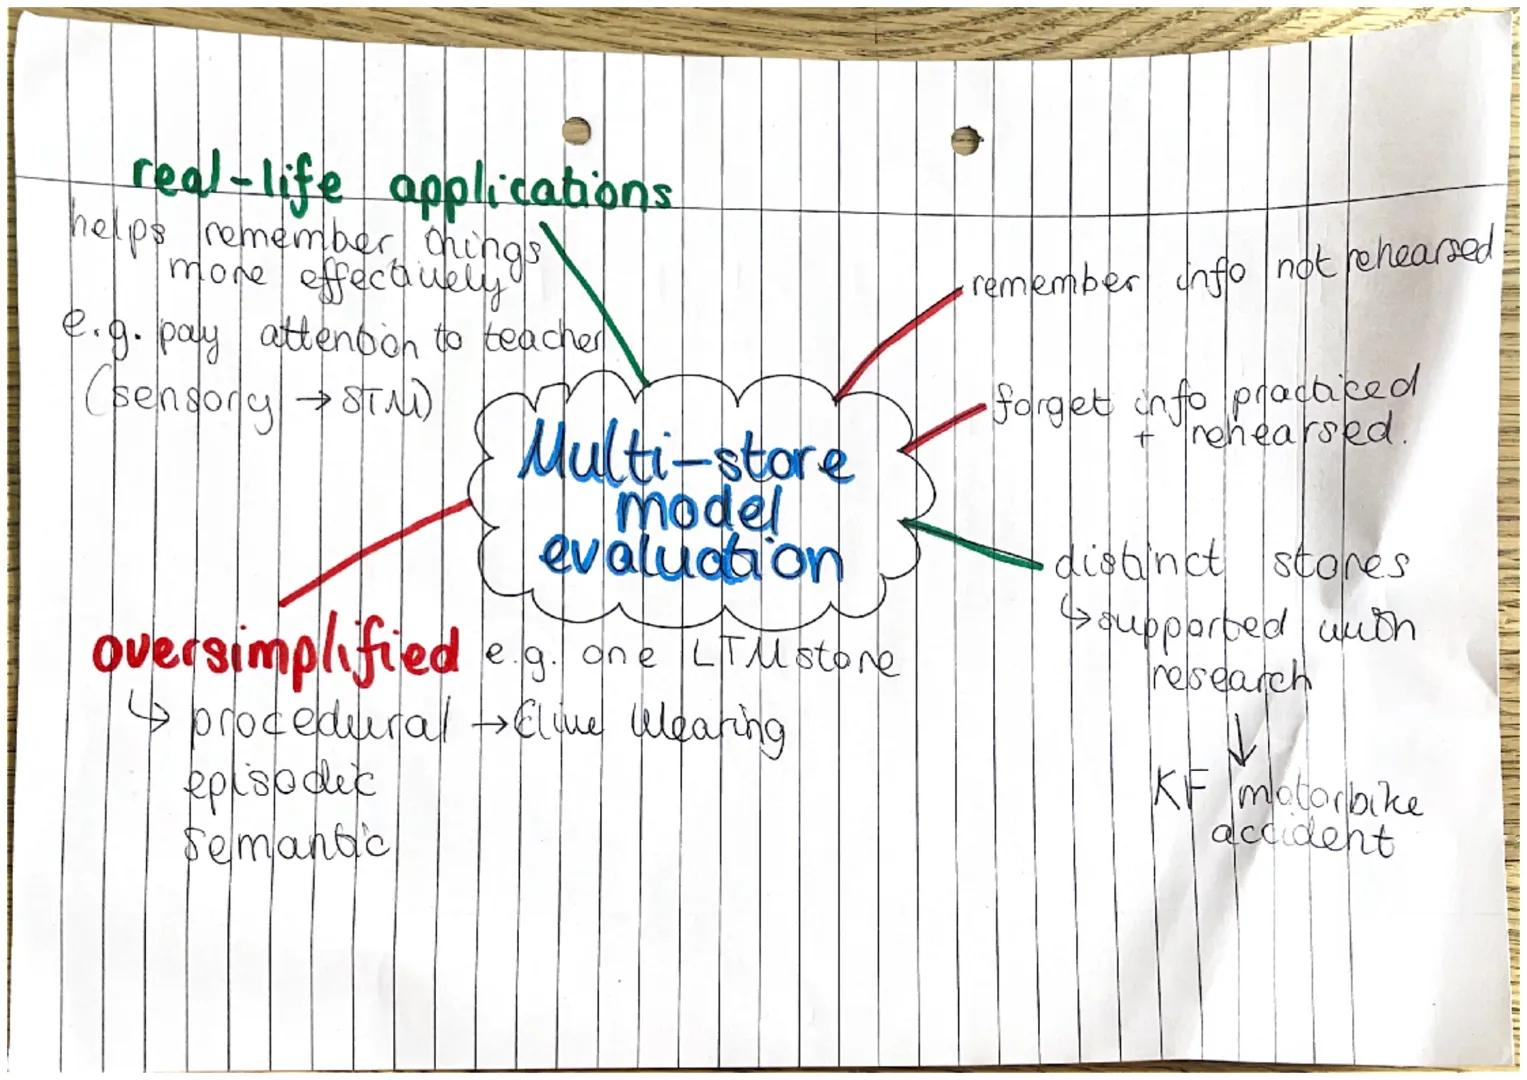 real-life applications
helps remember things
more effectively
e.g. pay attention to teacher
(sensory → STM)
remember info not rehearsed
forget info practiced
+ rehearsed.
Multi-store
model
evaluation
distinct stores
↳ supported with
research
↓
KF motorbike
accident
oversimplified e.g. one LTM store
↳ procedural → Clive Wearing
episodic
semantic